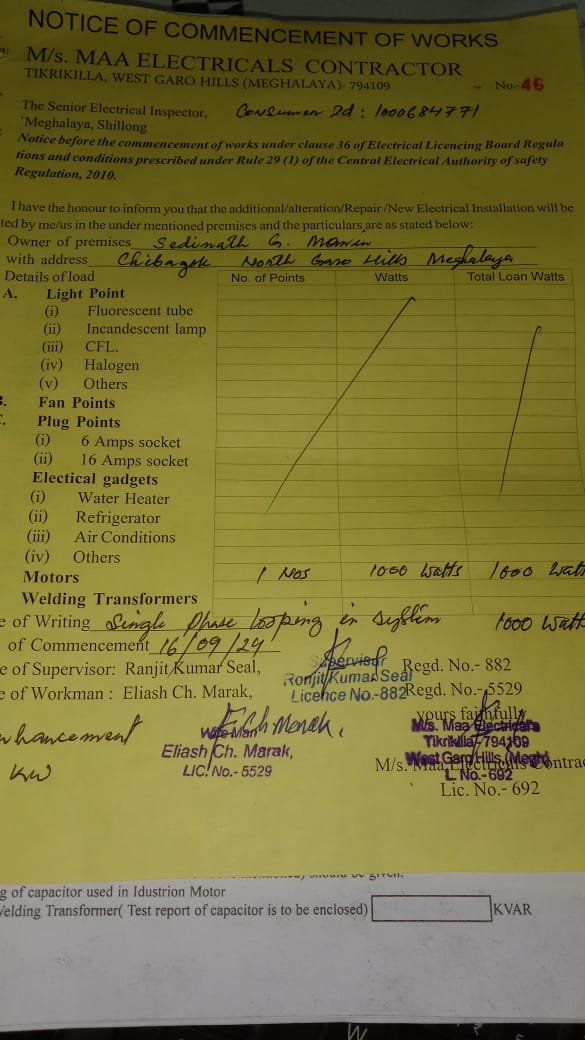 NOTICE OF COMMENCEMENT OF WORKS
M/s. MAA ELECTRICALS CONTRACTOR
TIKRIKILLA, WEST GARO HILLS (MEGHALAYA)- 794109
No.- 46
The Senior Electrical Inspector, Consumer Id : 1000684771
Meghalaya, Shillong
Notice before the commencement of works under clause 36 of Electrical Licencing Board Regula
tions and conditions prescribed under Rule 29 (1) of the Central Electrical Authority of safety
Regulation, 2010.
I have the honour to inform you that the additional/alteration/Repair /New Electrical Installation will be
ted by me/us in the under mentioned premises and the particulars are as stated below:
Owner of premises Sedinath G.
with address Chibagok North Garo Hills Meghalaya
Details of load No. of Points Watts Total Loan Watts
A. Light Point
(i) Fluorescent tube
(ii) Incandescent lamp
(iii) CFL.
(iv) Halogen
(v) Others
Fan Points
Plug Points
(i) 6 Amps socket
(ii) 16 Amps socket
Electical gadgets
(i) Water Heater
(ii) Refrigerator
(iii) Air Conditions
(iv) Others
Motors 1 Nos 1000 Watts 1000 Watt
Welding Transformers
e of Writing Single Phase looping in system 1000 Watt
of Commencement 16/09/24
e of Supervisor: Ranjit Kumar Seal, Regd. No.- 882
Supervisor
Ronjit Kumar Seal
Licence No.-882
e of Workman : Eliash Ch. Marak, Regd. No.- 5529
yours faithfully
hancement
KW
E. Ch Marak.
Wire Man
Eliash Ch. Marak,
LIC. No.- 5529
M/s. Maa Electricals
Tikrikilla-794109
West Garo Hills, (Megh)
L No.-692
M/s. Maa Electricals Contra
Lic. No.- 692
given.
g of capacitor used in Idustrion Motor
Welding Transformer( Test report of capacitor is to be enclosed) KVAR